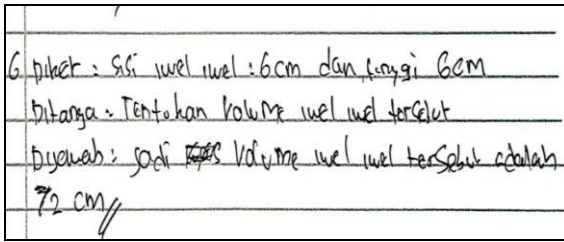 6 Diket : Sisi iwel iwel : 6 cm dan tinggi 6 cm
Ditanya : Tentukan Volume iwel iwel tersebut
Dijawab : Jadi Volume iwel iwel tersebut adalah
72 cm //